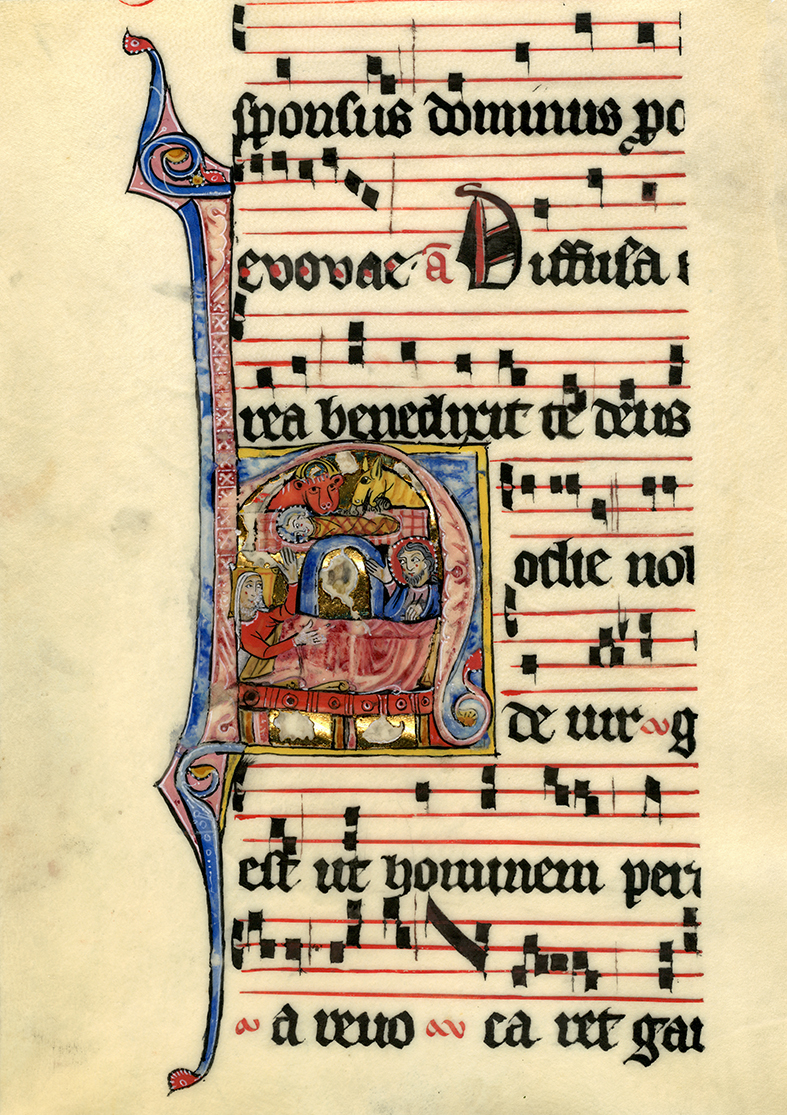 sponsus dominus ꝓc
evovae a̅ Diffusa
rea benedixit te deus
Hodie no
de uir g
est ut hominem per
a reuo ca ret gau